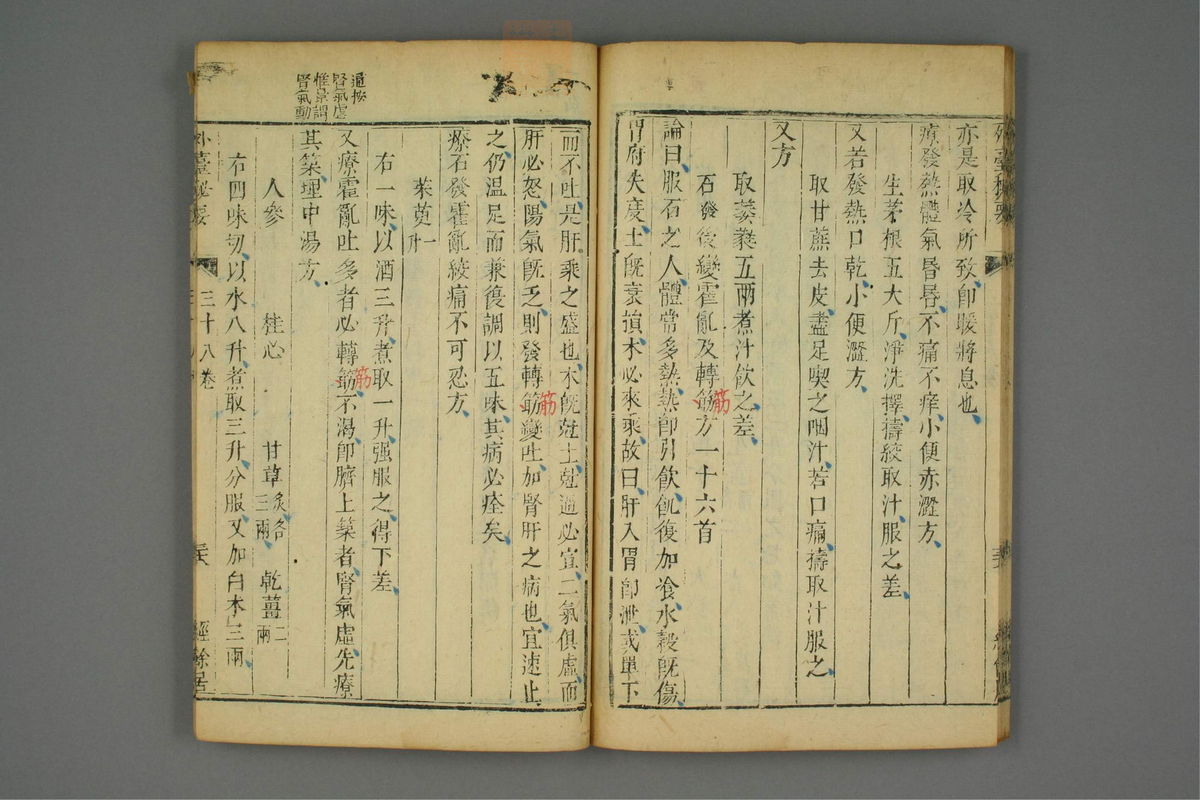 亦是取冷所致卽暖將息也
療發熱體氣昏昏不痛不痒小便赤澀方
生茅根五大斤淨洗擇擣絞取汁服之差
又若發熱口乾小便澀方
取甘蔗去皮盡足喫之咽汁若口痛擣取汁服之
又方
取葵蕤五兩煮汁飲之差
石發後變霍亂及轉筋方一十六首
筋
論曰服石之人體常多熱熱卽引飲飢復加飡水穀旣傷
胃府失度土旣衰損木必來乘故曰肝入胃卽泄或單下
而不吐是肝乘之盛也木旣尅土尅過必宜二氣俱虛而
肝必怒陽氣旣乏則發轉筋變吐加腎肝之病也宜速止
筋
之仍溫足而兼復調以五味其病必痊矣
療石發霍亂絞痛不可忍方
茱萸一升
右一味以酒三升煮取一升强服之得下差
又療霍亂吐多者必轉筋不渴卽臍上築者腎氣虛先療
筋
其築理中湯方
人參 桂心 甘草炙各三兩 乾薑二兩
右四味切以水八升煮取三升分服又加白朮三兩
外臺秘要
三十八卷
經餘居
逎按
腎氣虛
惟景謂
腎氣動